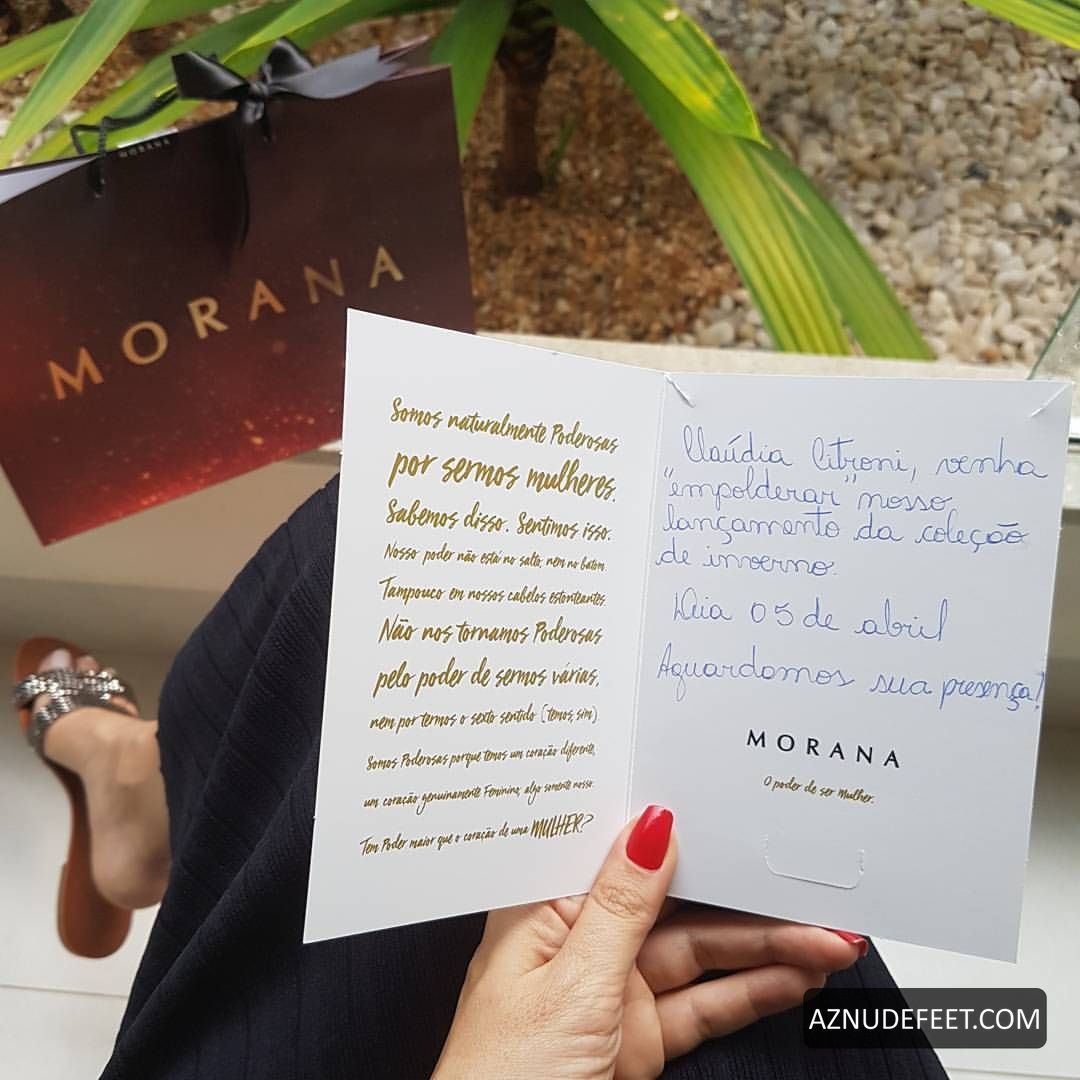 MORANA
MORANA
Somos naturalmente Poderosas
por sermos mulheres.
Sabemos disso. Sentimos isso.
Nosso poder não está no salto, nem no batom.
Tampouco em nossos cabelos estonteantes.
Não nos tornamos Poderosas
pelo poder de sermos várias,
nem por termos o sexto sentido (temos, sim).
Somos Poderosas porque temos um coração diferente,
um coração genuinamente Feminino, algo somente nosso.
Tem Poder maior que o coração de uma MULHER?
Claúdia Citroni, venha
"empolderar" nosso
lançamento da coleção
de inverno.
Dia 05 de abril
Aguardamos sua presença!
MORANA
O poder de ser Mulher.
AZNUDEFEET.COM